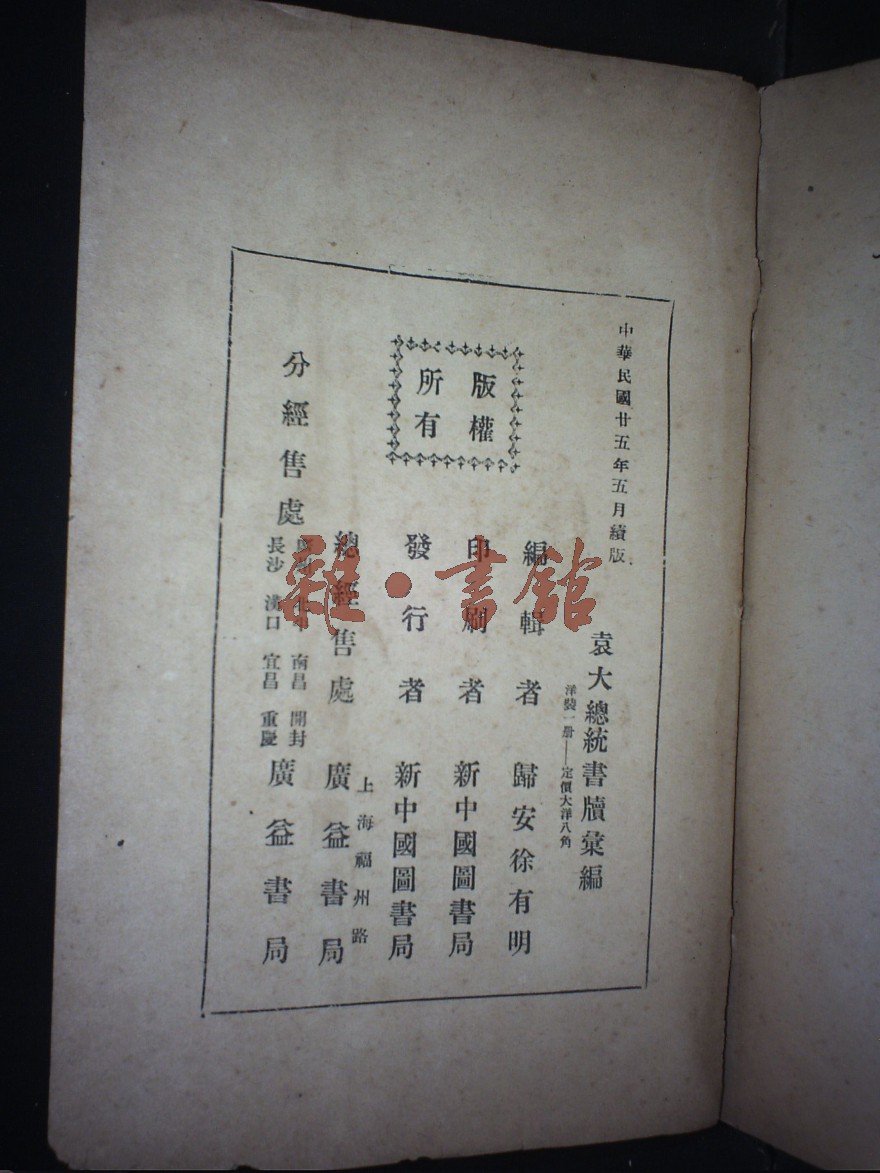 中華民國廿五年五月續版
袁大總統書牘彙編
洋裝一册——定價大洋八角
版權
所有
編輯者 歸安徐有明
印刷者 新中國圖書局
發行者 新中國圖書局
上海福州路
總經售處 廣益書局
分經售處
南昌 開封
長沙 漢口 宜昌 重慶
廣益書局
雜·書館